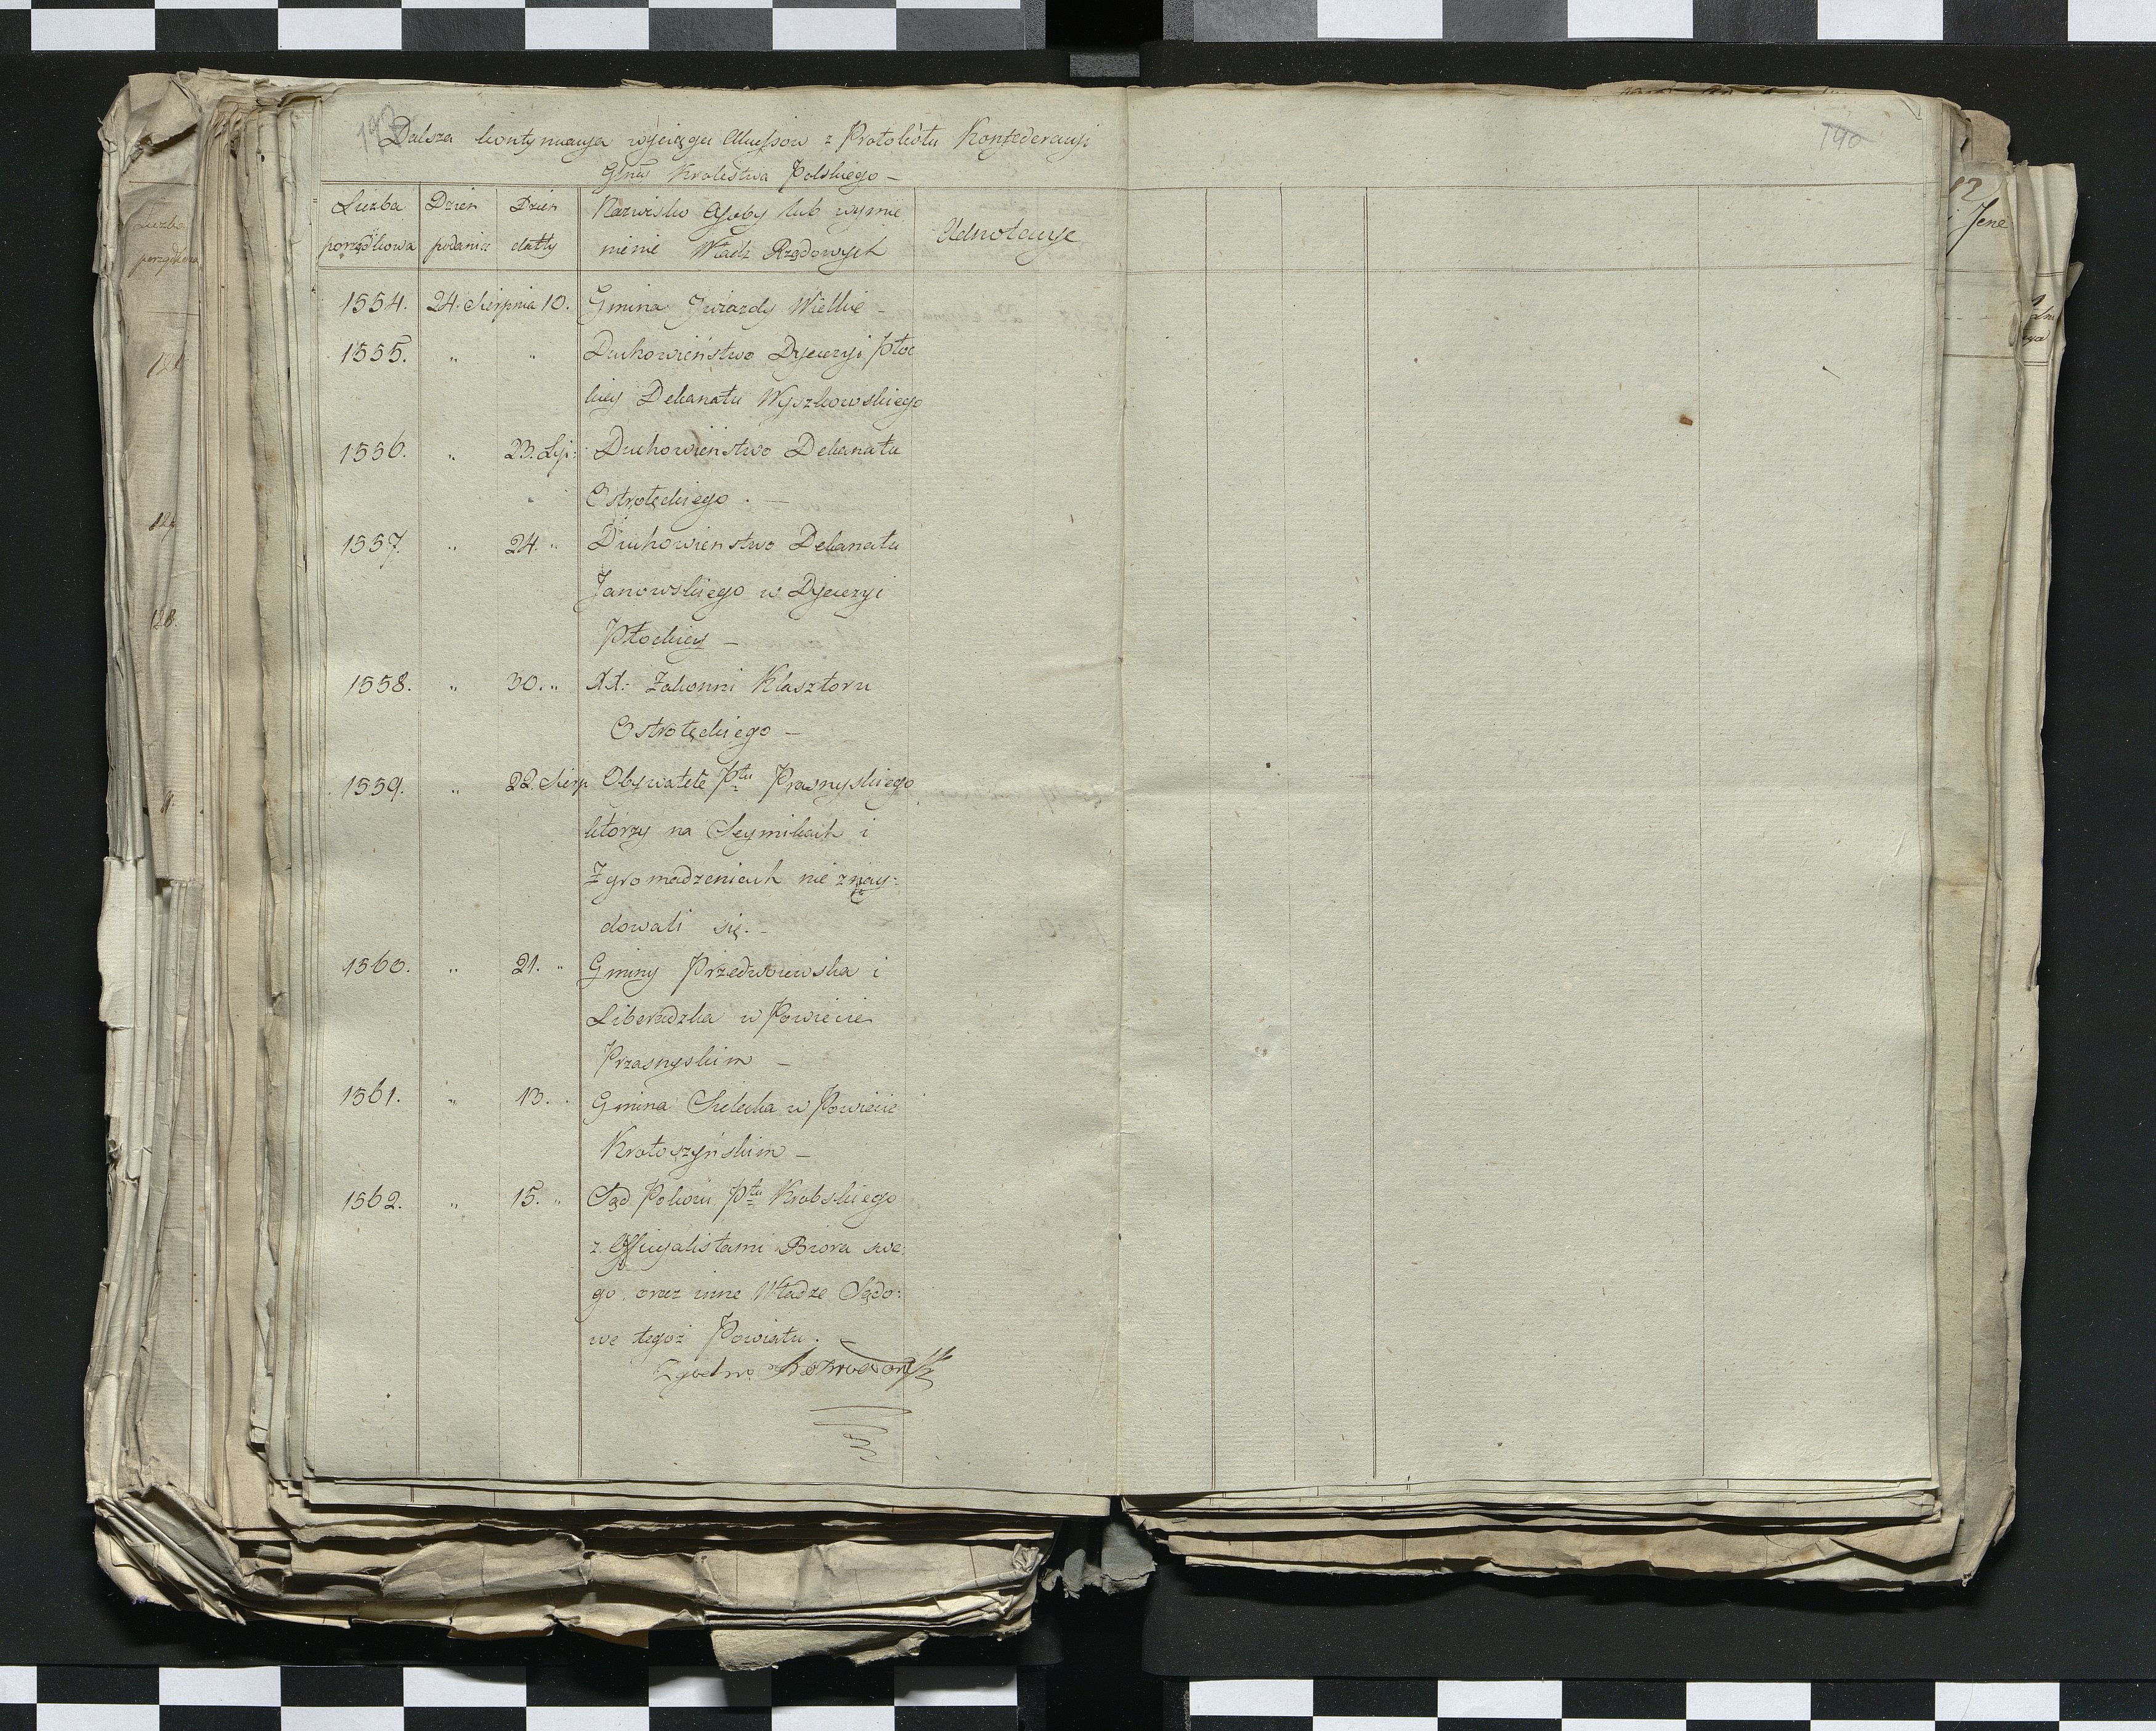 Dalsza kontynuacya wyciągu Akcessow z Protokółu Konfederacyi
Glney Krolestwa Polskiego –
140
Liczba Dzień Dzień Nazwisko Osoby lub wymie
porządkowa podania datty nienie Władz Rządowych Adnotacye
1554. 24. Sierpnia 10. Gmina Gwiazdy Wielkie –
1555. " " Duchowieństwo Dyecezyi Płoc
kiey Dekanatu Wyszkowskiego
1556. " 23. Lip: Duchowieństwo Dekanatu
Ostrołęckiego. –
1557. " 24. " Duchowieństwo Dekanatu
Janowskiego w Dyecezyi
Płockiey –
1558. " 30. " XX: Zakonni Klasztoru
Ostrołęckiego –
1559. " 22. Sierp Obywatele Ptu Prasnyskiego
którzy na Seymikach i
Zgromadzeniach nie znay:
dowali się. –
1560. " 21. " Gminy Przedwoiewska i
Liberadzka w Powiecie
Przasnyskim –
1561. " 13. " Gmina Sielecka w Powiecie
Krotoszyńskim –
1562. " 15. " Sąd Pokoiu Ptu Krobskiego
z Officyalistami Biora swe:
go oraz inne Władze Sądo:
we tegoż Powiatu. –
Zgodno
Liczba
porządkowa
128.
12
Jene